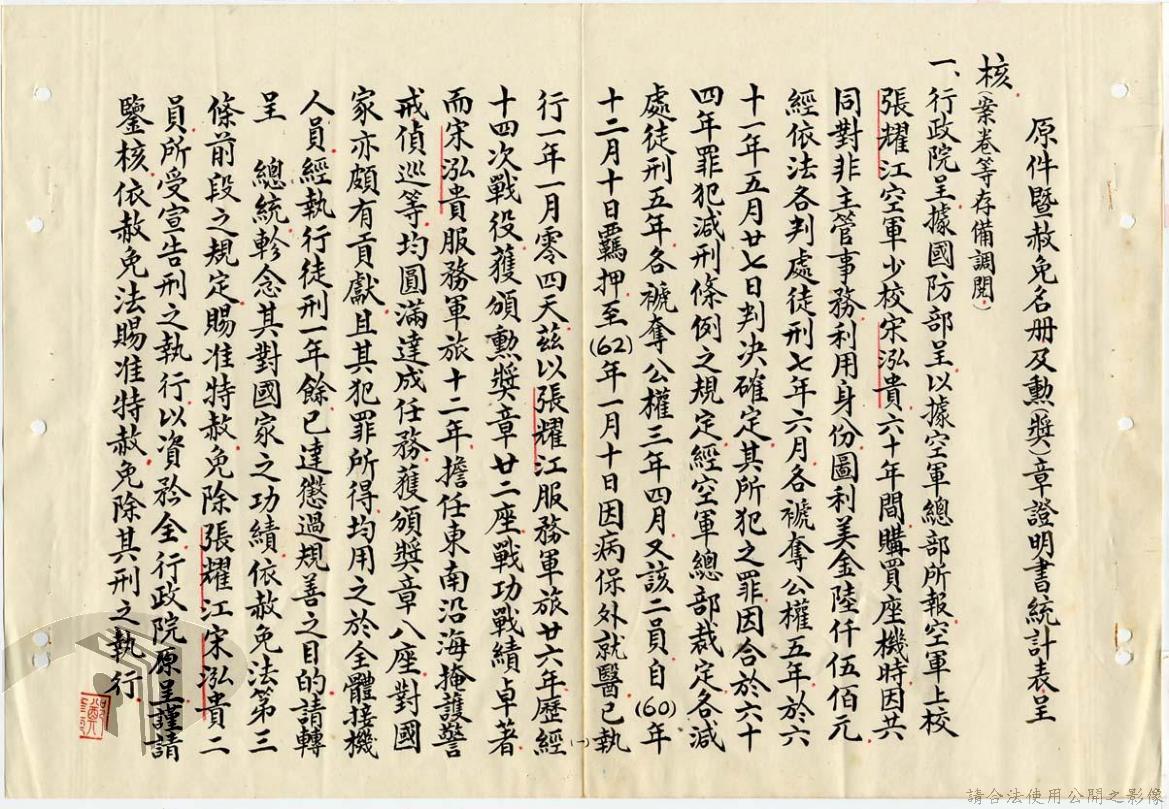 原件暨赦免名册及勲(獎)章證明書統計表呈
核(案卷等存備調閱)
一、行政院呈據國防部呈以據空軍總部所報空軍上校
張耀江空軍少校宋泓貴六十年間購買座機時因共
同對非主管事務利用身份圖利美金陸仟伍佰元
經依法各判處徒刑七年六月各褫奪公權五年於六
十一年五月廿七日判决確定其所犯之罪因合於六十
四年罪犯減刑條例之規定經空軍總部裁定各減
處徒刑五年各褫奪公權三年四月又該二員自(60)年
十二月十日羈押至(62)年一月十日因病保外就醫已執
行一年一月零四天茲以張耀江服務軍旅廿六年歷經
十四次戰役獲頒勳獎章廿二座戰功戰績卓著
而宋泓貴服務軍旅十二年擔任東南沿海掩護警
戒偵巡等均圓滿達成任務獲頒獎章八座對國
家亦頗有貢獻且其犯罪所得均用之於全體接機
人員經執行徒刑一年餘已達懲過規善之目的請轉
呈 總統軫念其對國家之功績依赦免法第三
條前段之規定賜准特赦免除張耀江宋泓貴二
員所受宣告刑之執行以資矜全行政院原呈謹請
鑒核依赦免法賜准特赦免除其刑之執行
(一)
請合法使用公開之影像